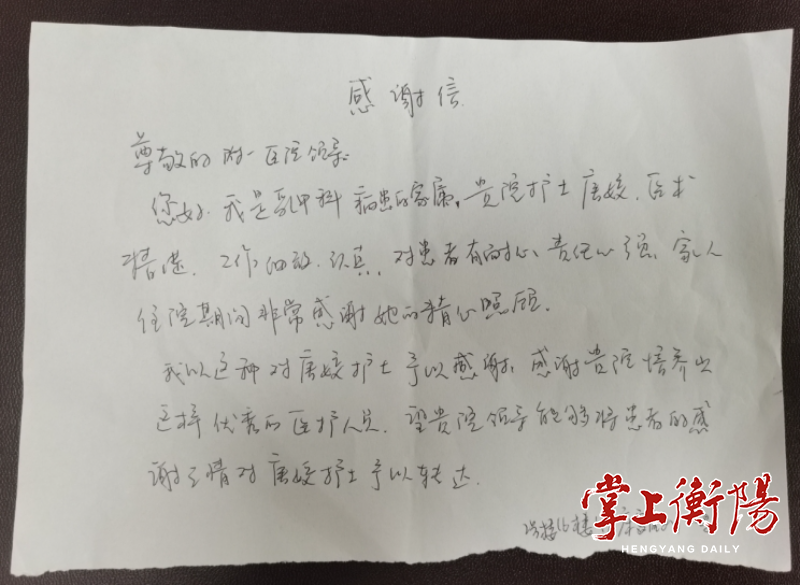 感谢信
尊敬的附一医院领导
您好。我是乳甲科病患的家属,贵院护士唐姣,医术
精湛、工作细致、认真,对患者有耐心、责任心强、家人
住院期间非常感谢她的精心照顾.
我以这种对唐姣护士予以感谢,感谢贵院培养出
这样优秀的医护人员.望贵院领导能够将患者的感
谢之情对唐姣护士予以转达.
掌上衡陽
HENGYANG DAILY